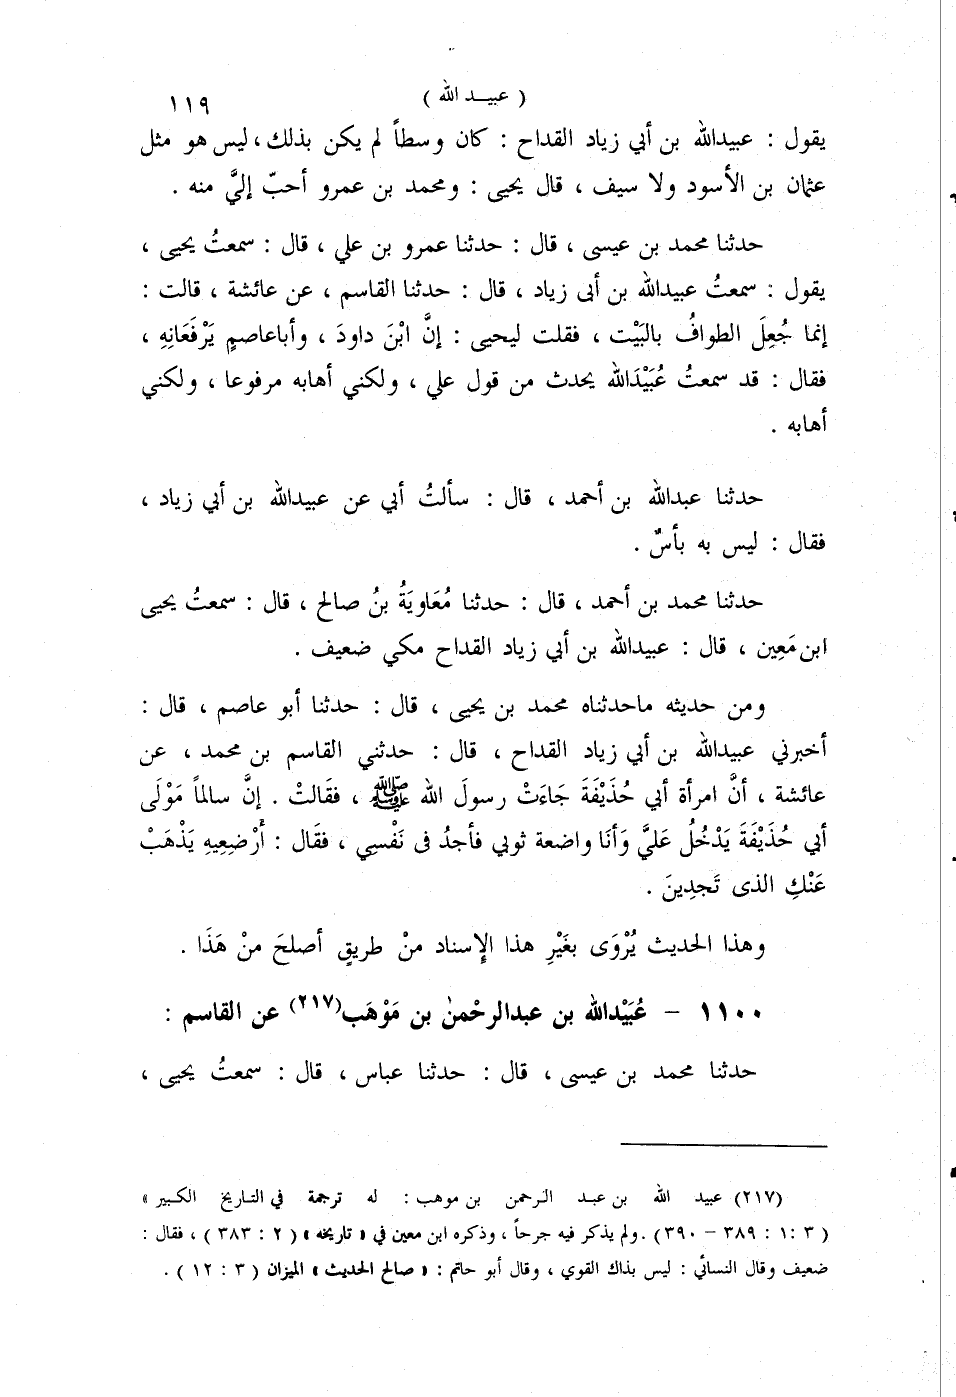 ( عبيــد الله )
١١٩
يقول : عبيدالله بن أبي زياد القداح : كان وسطاً لم يكن بذلك، ليس هو مثل
عثمان بن الأسود ولا سيف ، قال يحيى : ومحمد بن عمرو أحبّ إليَّ منه .
حدثنا محمد بن عيسى ، قال : حدثنا عمرو بن علي ، قال : سمعتُ يحيى ،
يقول : سمعتُ عبيدالله بن أبى زياد ، قال : حدثنا القاسم ، عن عائشة ، قالت :
إنما جُعِلَ الطوافُ بالبَيْت ، فقلت ليحيى : إنَّ ابْنَ داودَ ، وأباعاصمٍ يَرْفَعَانِهِ ،
فقال : قد سمعتُ عُبَيْدَالله يحدث من قول علي ، ولكني أهابه مرفوعا ، ولكني
أهابه .
حدثنا عبدالله بن أحمد ، قال : سألتُ أبي عن عبيدالله بن أبي زياد ،
فقال : ليس به بأسٌ .
حدثنا محمد بن أحمد ، قال : حدثنا مُعَاويَةُ بنُ صالح ، قال : سمعتُ يحيى
ابن مَعِين ، قال : عبيدالله بن أبي زياد القداح مكي ضعيف .
ومن حديثه ماحدثناه محمد بن يحيى ، قال : حدثنا أبو عاصم ، قال :
أخبرني عبيدالله بن أبي زياد القداح ، قال : حدثني القاسم بن محمد ، عن
عائشة ، أنَّ امرأة أبي حُذَيْفَةَ جَاءَتْ رسولَ الله ﷺ ، فقَالتْ . إنَّ سالماً مَوْلَى
أبي حُذَيْفَةَ يَدْخُلُ عَليَّ وَأنَا واضعة ثوبي فأجدُ فى نَفْسِي ، فقَال : أَرْضِعِيهِ يَذْهَبْ
عَنْكِ الذى تَجدِينَ .
وهذا الحديث يُرْوَى بغَيْرِ هذا الإسناد منْ طريقٍ أصلحَ منْ هَذَا .
١١٠٠ – عُبَيْدالله بن عبدالرحْمنٰ بن مَوْهَب(٢١٧) عن القاسم :
حدثنا محمد بن عيسى ، قال : حدثنا عباس ، قال : سمعتُ يحيى ،
(٢١٧) عبيد الله بن عبـد الرحمن بن موهب : له ترجمة في التـاريخ الكـبير »
( ٣ :١ : ٣٨٩ – ٣٩٠ ) .ولم يذكر فيه جرحاً ، وذكره ابن معين في « تاريخه » ( ٢ : ٣٨٣ ) ، فقال :
ضعيف وقال النسائي : ليس بذاك القوي ، وقال أبو حاتم : « صالح الحديث » الميزان ( ٣ : ١٢ ) .